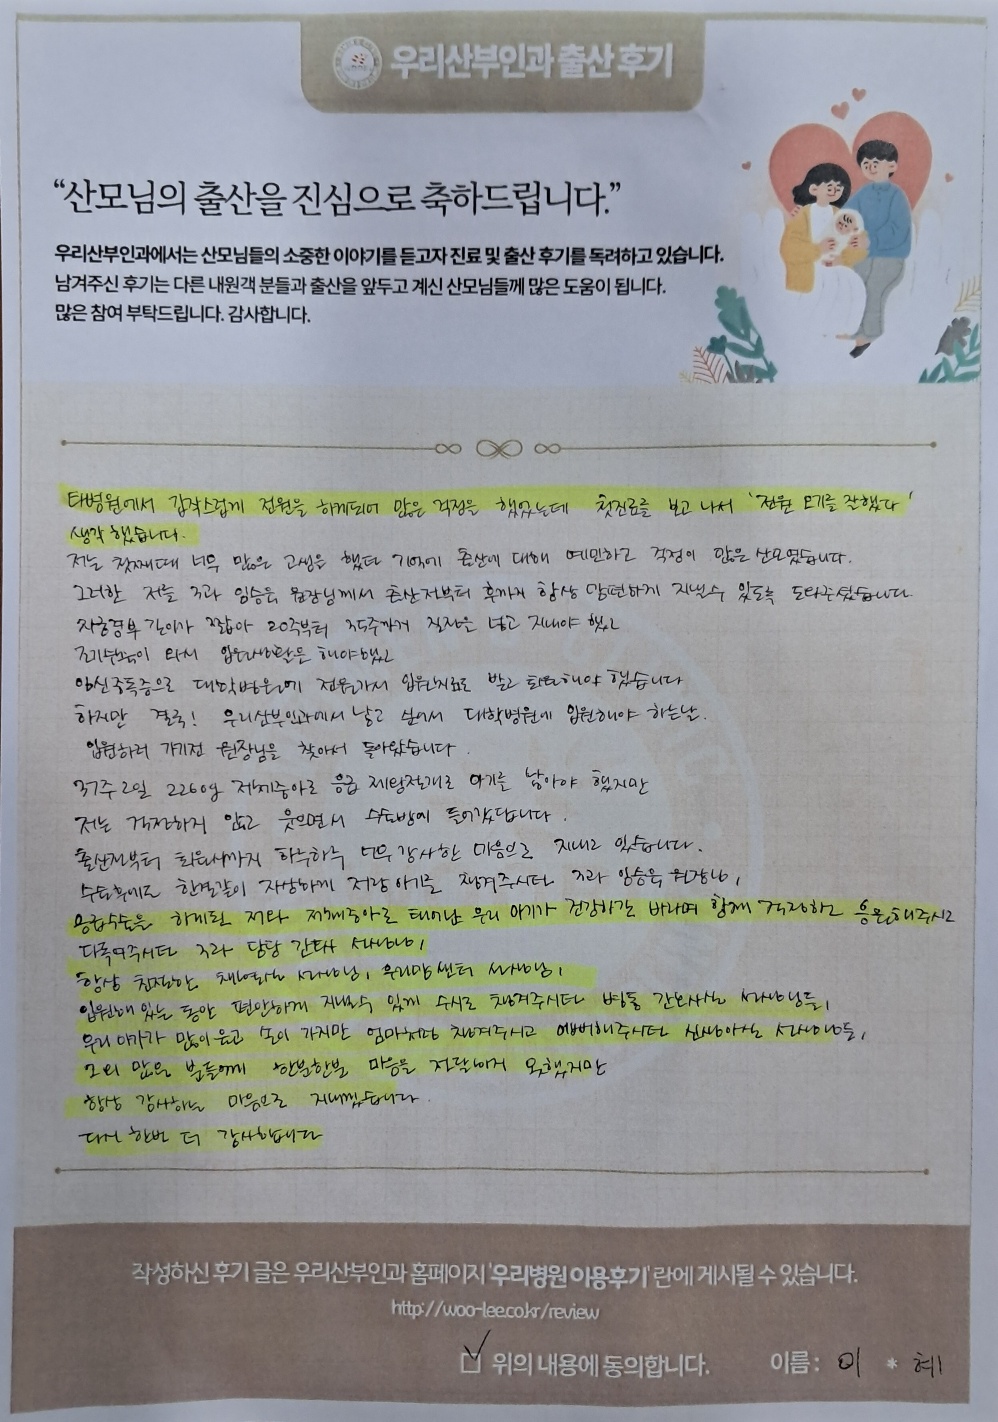 우리산부인과 출산 후기
“산모님의 출산을 진심으로 축하드립니다.”
우리산부인과에서는 산모님들의 소중한 이야기를 듣고자 진료 및 출산 후기를 독려하고 있습니다.
남겨주신 후기는 다른 내원객 분들과 출산을 앞두고 계신 산모님들께 많은 도움이 됩니다.
많은 참여 부탁드립니다. 감사합니다.
타병원에서 갑작스럽게 전원을 하게되어 많은 걱정을 했었는데 첫진료를 보고 나서 '전원 오기를 잘했다'
생각 했습니다.
저는 첫째때 너무 많은 고생을 했던 기억에 출산에 대해 예민하고 걱정이 많은 산모였습니다.
그러한 저를 3과 임승욱 원장님께서 출산전부터 후까지 항상 맘편하게 지낼수 있도록 도와주셨습니다
자궁경부 길이가 짧아 20주부터 35주까지 질정을 넣고 지내야 했고
조기수축이 와서 입원생활을 해야했고
임신중독증으로 대학병원에 전원가서 입원치료도 받고 퇴원해야 했습니다
하지만 결국! 우리산부인과에서 낳고 싶어서 대학병원에 입원해야 하는날.
입원하러 가기전 원장님을 찾아서 돌아왔습니다.
37주2일 2260g 저체중아로 응급 제왕절개로 아기를 낳아야 했지만
저는 걱정하지 않고 웃으면서 수술방에 들어갔답니다.
출산전부터 퇴원시까지 하루하루 너무 감사한 마음으로 지내고 있습니다.
수술후에도 한결같이 자상하게 저랑 아기를 챙겨주시던 3과 임승욱 원장님,
응급수술을 하게된 저와 저체중아로 태어난 우리 아기가 건강하길 바라며 함께 걱정하고 응원해주시고
다독여주시던 3과 담당 간호사 선생님,
항상 친절한 선생님, 우리맘센터 선생님,
입원해 있는 동안 편안하게 지낼수 있게 수시로 챙겨주시던 병동 간호사실 선생님들,
우리 아가가 많이 울고 손이 가지만 엄마처럼 챙겨주시고 예뻐해주시던 신생아실 선생님들,
그외 많은 분들에게 한분한분 마음을 전달하지 못했지만
항상 감사하는 마음으로 지내겠습니다.
다시 한번 더 감사합니다
작성하신 후기 글은 우리산부인과 홈페이지 '우리병원 이용후기' 란에 게시될 수 있습니다.
http://woo-lee.co.kr/review
위의 내용에 동의합니다. 이름 : 이 * 혜